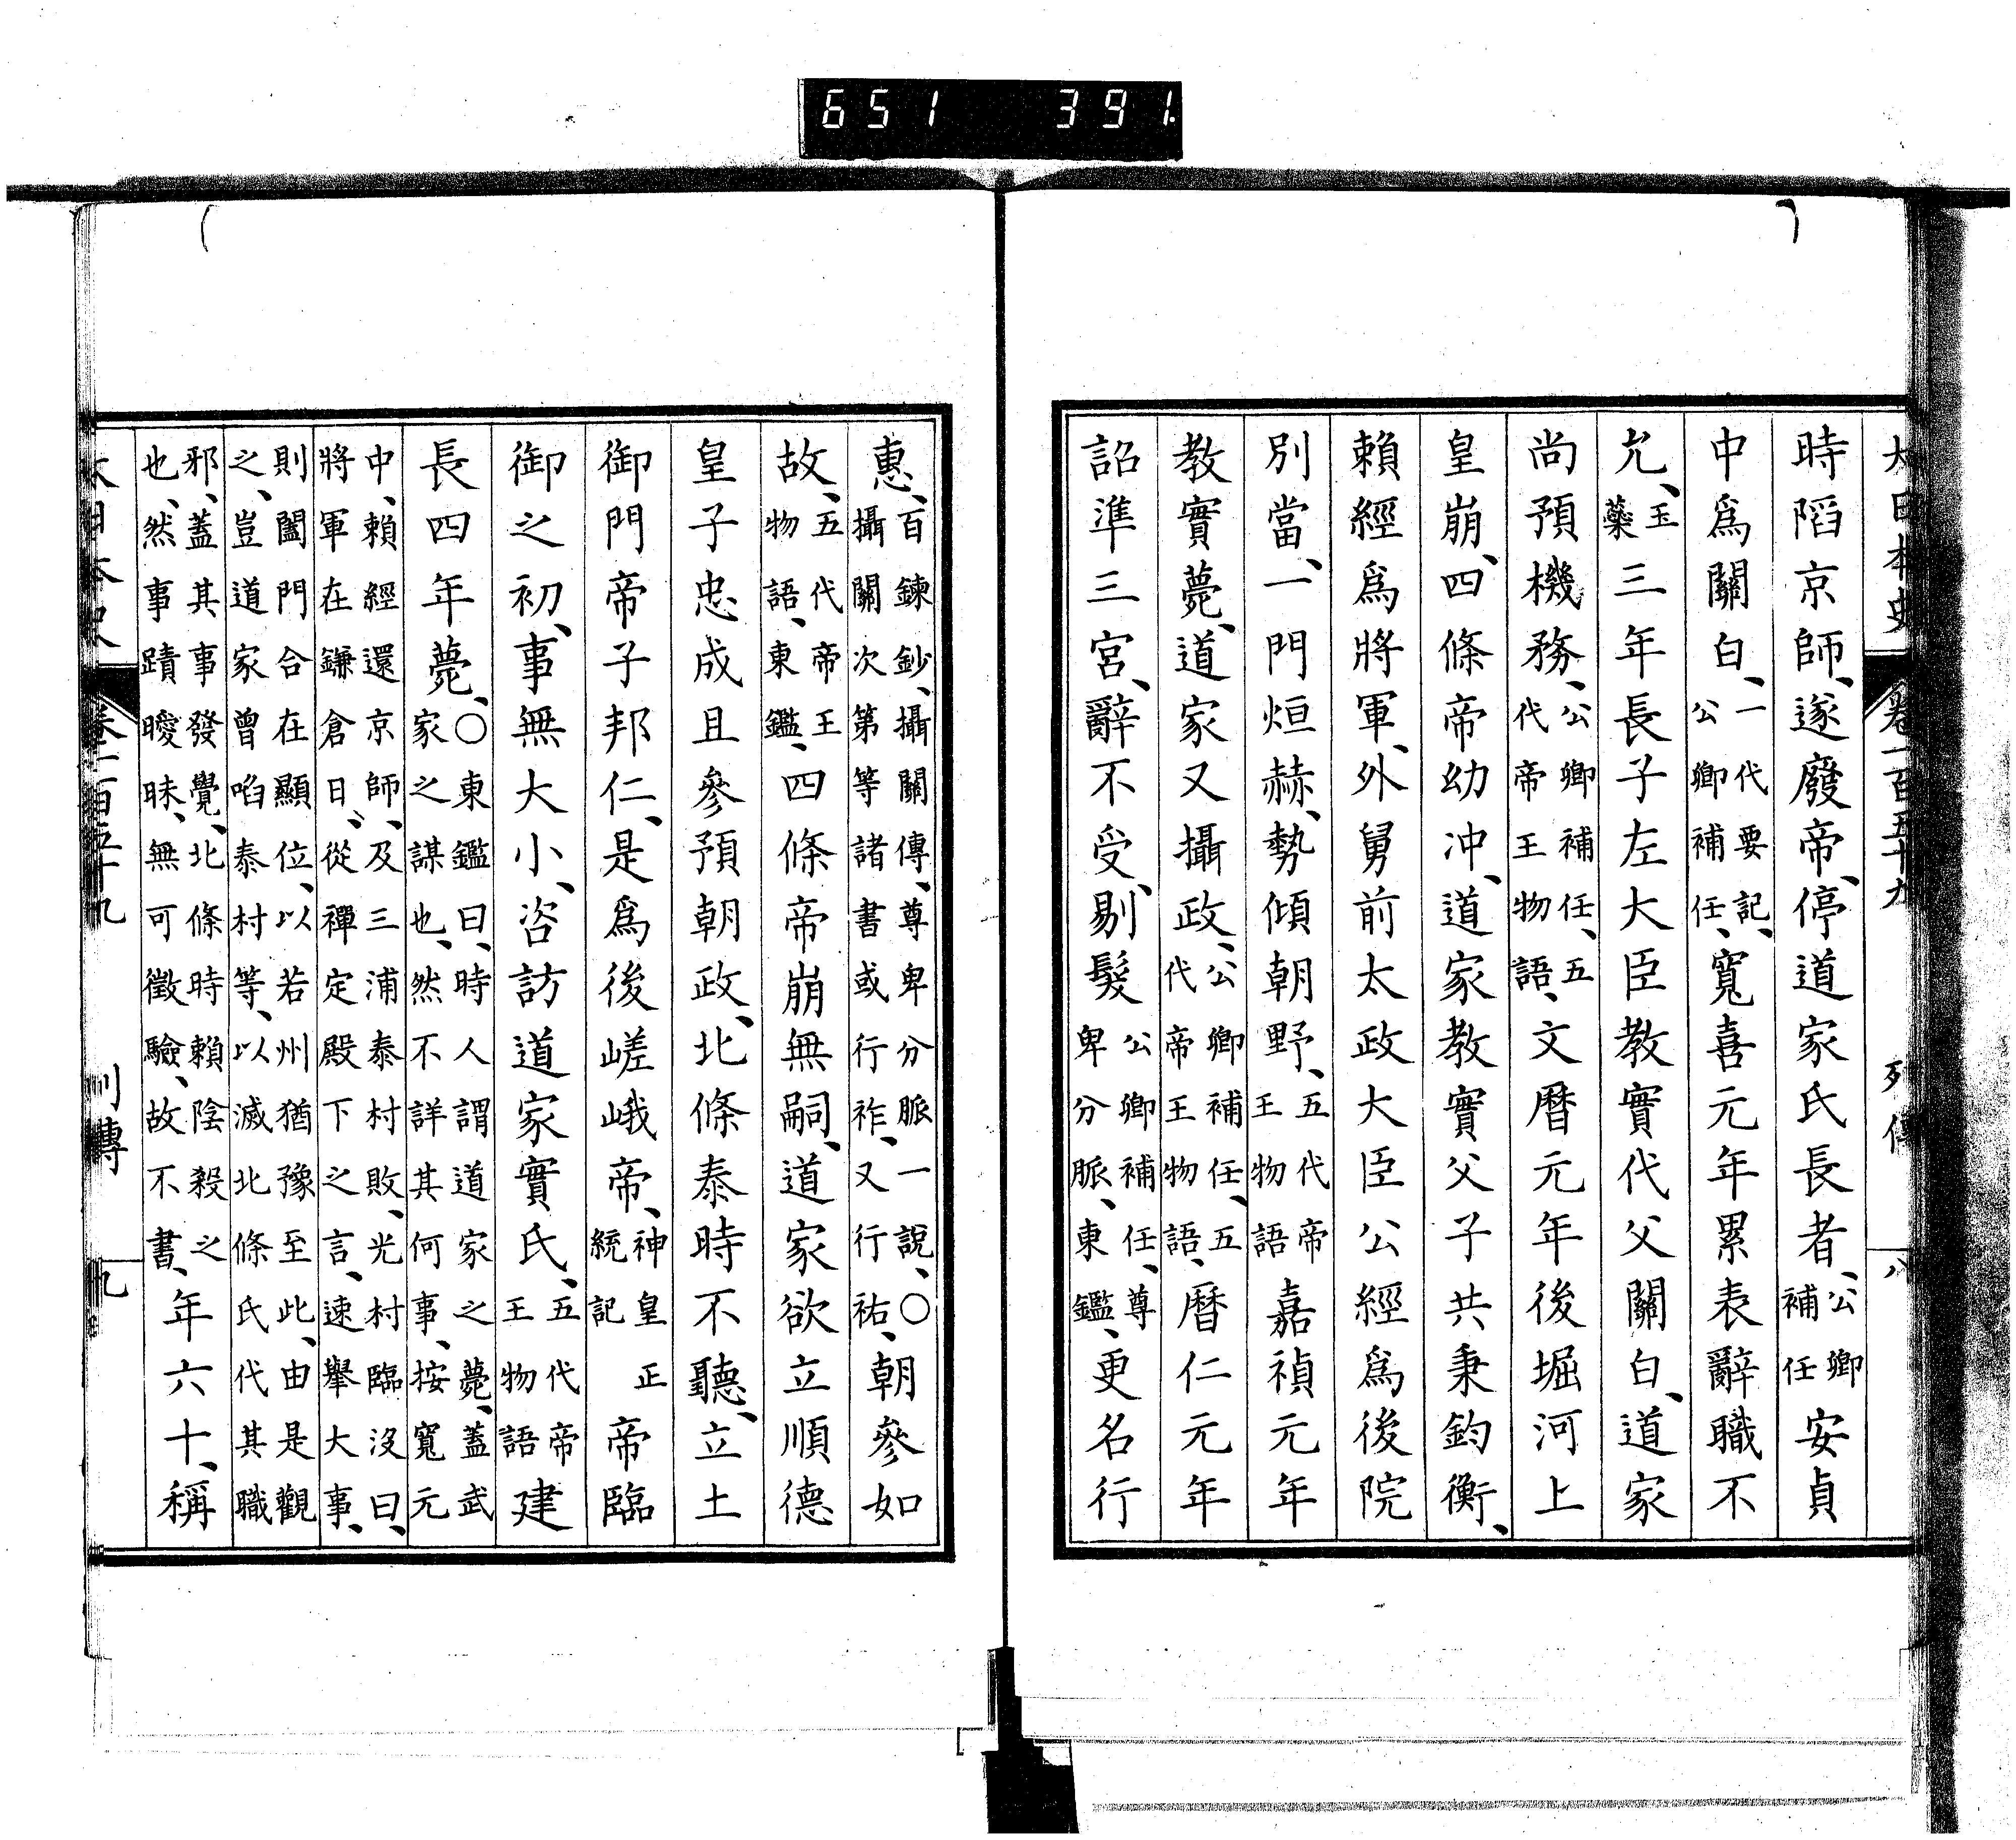 651 391
大日本史 卷一百五十九 列傳 八
時陷京師、遂廢帝、停道家氏長者、公卿補任安貞
中爲關白、一代要記、公卿補任、寬喜元年累表辭職不
允、玉蘂三年長子左大臣教實代父關白、道家
尚預機務、公卿補任、五代帝王物語、文曆元年後堀河上
皇崩、四條帝幼冲、道家教實父子共秉鈞衡、
賴經爲將軍、外舅前太政大臣公經爲後院
別當、一門烜赫、勢傾朝野、五代帝王物語嘉禎元年
教實薨、道家又攝政、公卿補任、五代帝王物語、曆仁元年
詔準三宮、辭不受、剔髮公卿補任、尊卑分脈、東鑑、更名行
惠、百鍊鈔、攝關傳、尊卑分脈一說、〇攝關次第等諸書或行祚、又行祐、朝參如
故、五代帝王物語、東鑑、四條帝崩無嗣、道家欲立順德
皇子忠成且參預朝政、北條泰時不聽、立土
御門帝子邦仁、是爲後嵯峨帝、神皇正統記帝臨
御之初、事無大小、咨訪道家實氏、五代帝王物語建
長四年薨、〇東鑑曰、時人謂道家之薨、蓋武家之謀也、然不詳其何事、按寬元
中、賴經還京師、及三浦泰村敗、光村臨沒曰、將軍在鎌倉日、從禪定殿下之言、速舉大事、
則闔門合在顯位、以若州猶豫至此、由是觀之、豈道家曾啗泰村等、以滅北條氏代其職
邪、蓋其事發覺、北條時賴陰殺之也、然事蹟曖昧、無可徵驗、故不書、年六十、稱
大日本史 卷一百五十九 列傳 九